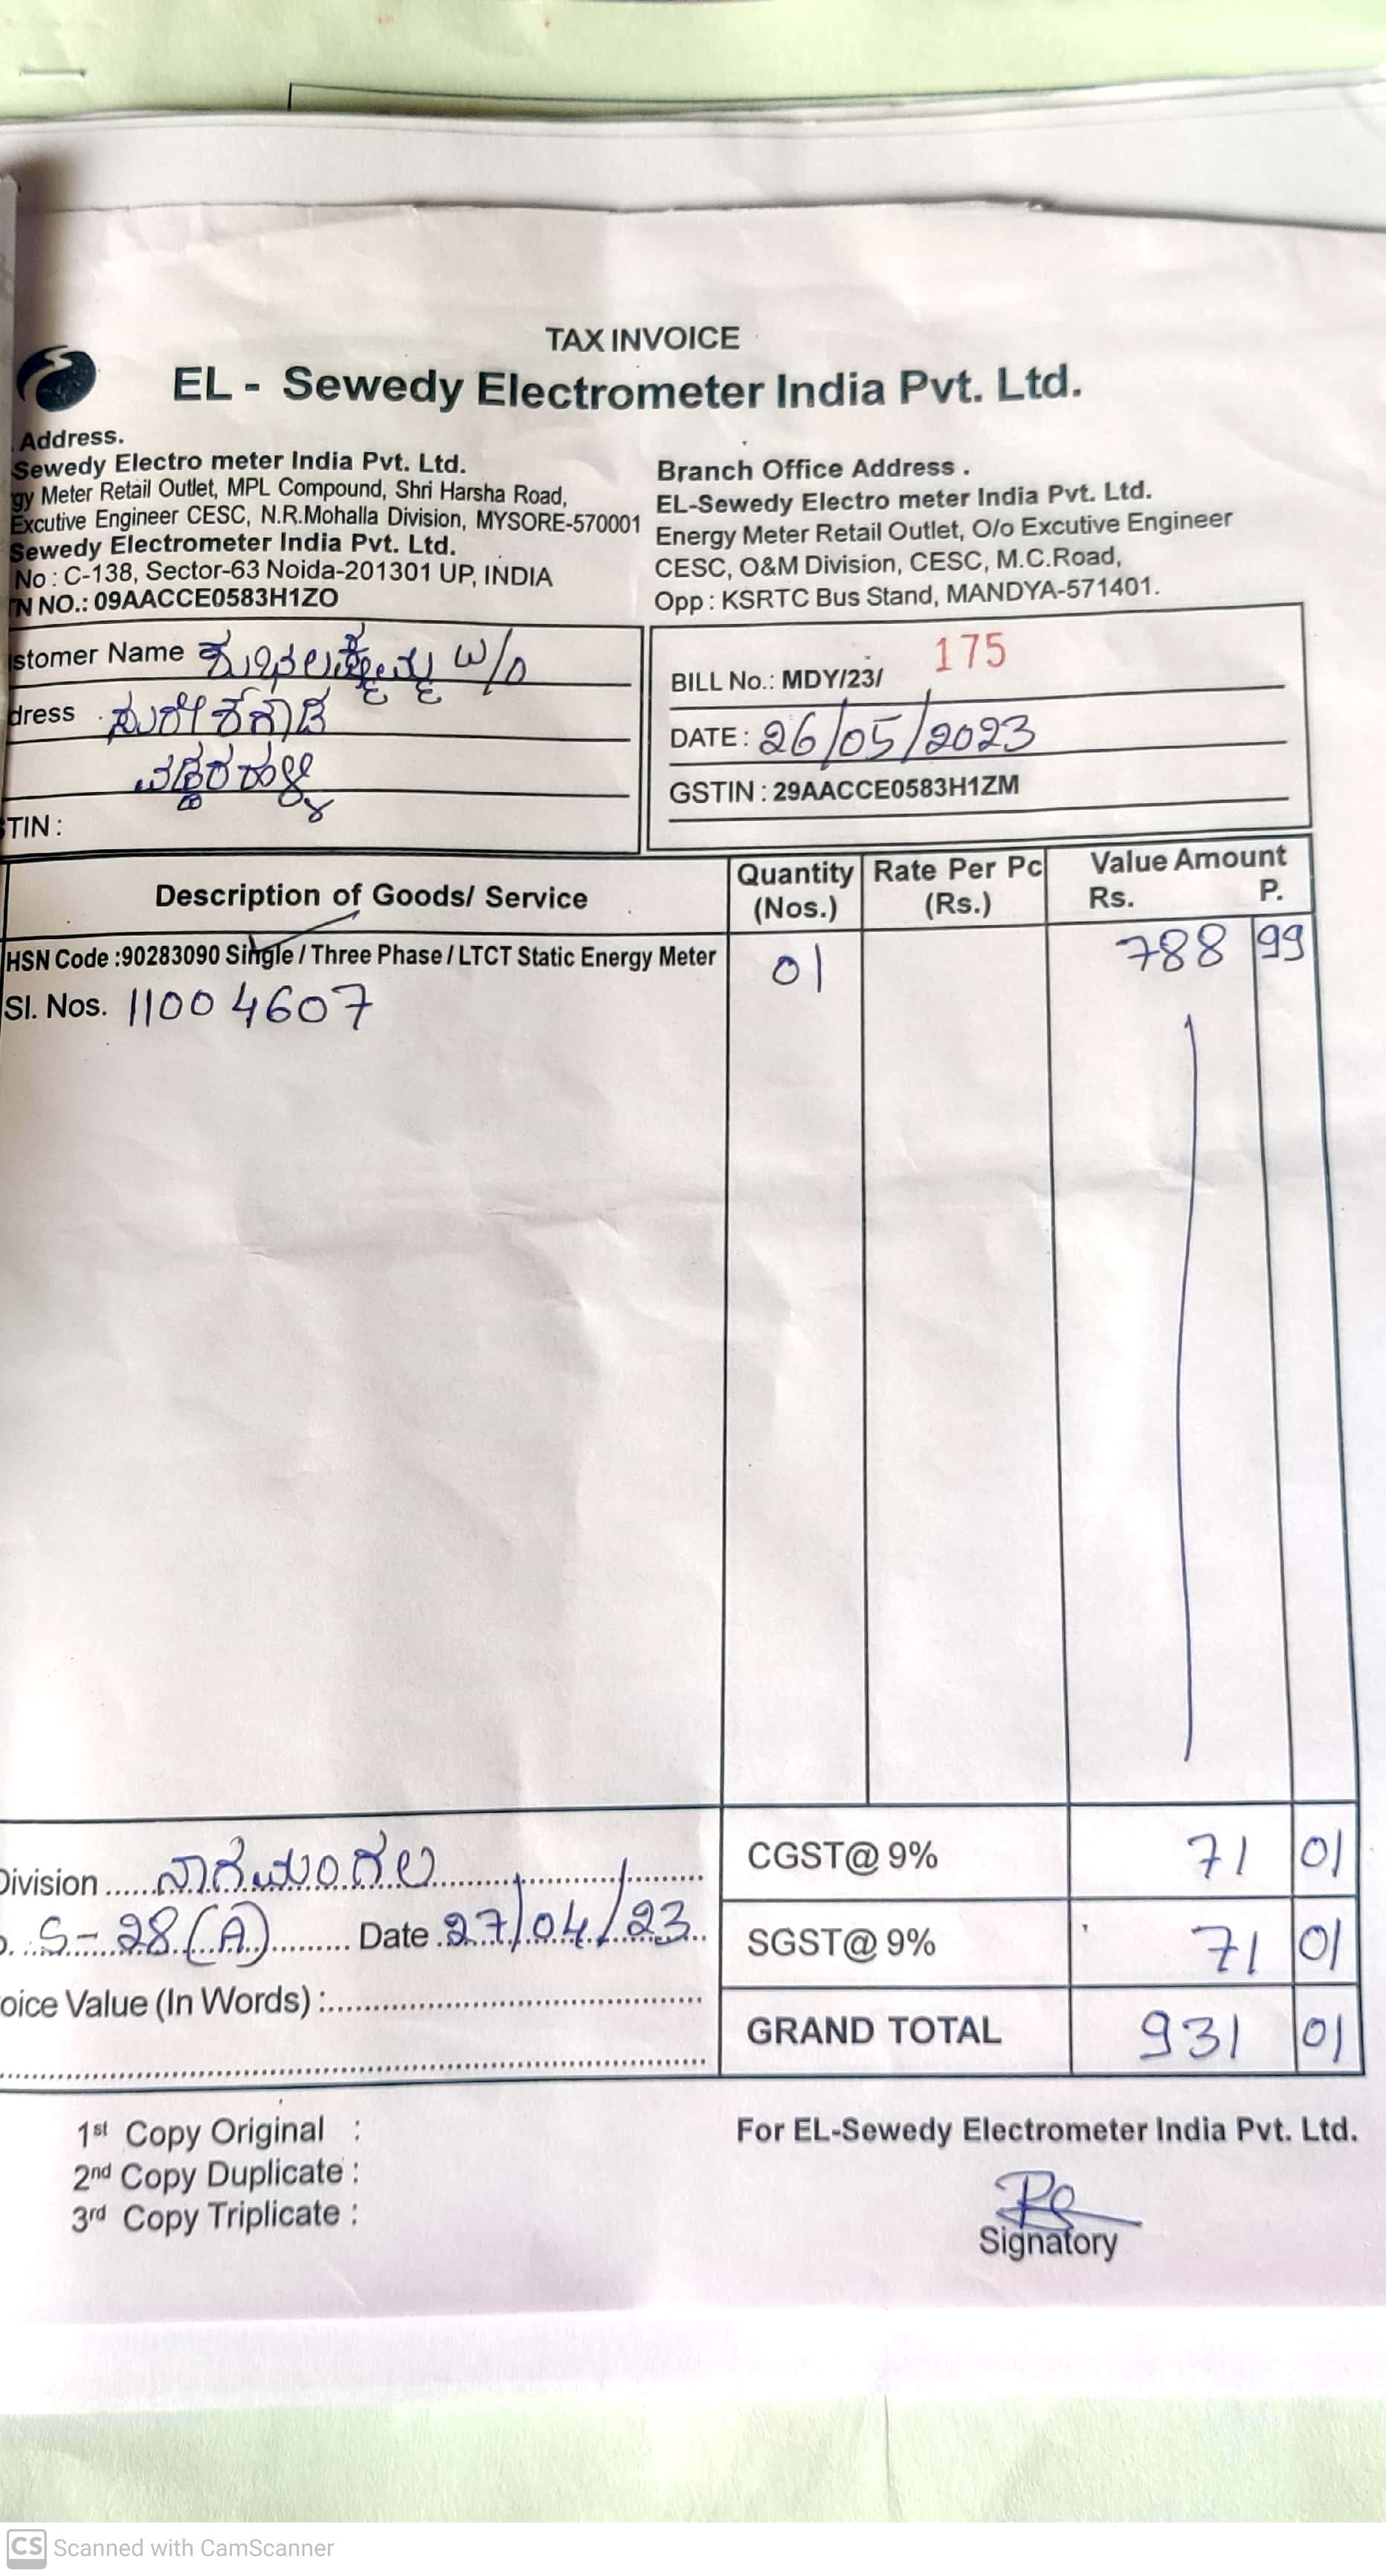 TAX INVOICE
EL - Sewedy Electrometer India Pvt. Ltd.
Address.
Sewedy Electro meter India Pvt. Ltd.
gy Meter Retail Outlet, MPL Compound, Shri Harsha Road,
Excutive Engineer CESC, N.R.Mohalla Division, MYSORE-570001
Sewedy Electrometer India Pvt. Ltd.
No : C-138, Sector-63 Noida-201301 UP, INDIA
N NO.: 09AACCE0583H1ZO
Branch Office Address .
EL-Sewedy Electro meter India Pvt. Ltd.
Energy Meter Retail Outlet, O/o Excutive Engineer
CESC, O&M Division, CESC, M.C.Road,
Opp : KSRTC Bus Stand, MANDYA-571401.
stomer Name ಶುಭಲಕ್ಷ್ಮಮ್ಮ W/o
dress ಸುರೇಶಗೌಡ
TIN :
BILL No.: MDY/23/ 175
DATE : 26/05/2023
GSTIN : 29AACCE0583H1ZM
Description of Goods/ Service Quantity (Nos.) Rate Per Pc (Rs.) Value Amount Rs. P.
HSN Code :90283090 Single / Three Phase / LTCT Static Energy Meter 01 788 99
Sl. Nos. 11004607
Division ನಾಗಮಂಗಲ
S-28(A) Date 27/04/23
oice Value (In Words) :
CGST@ 9% 71 01
SGST@ 9% 71 01
GRAND TOTAL 931 01
1st Copy Original :
2nd Copy Duplicate :
3rd Copy Triplicate :
For EL-Sewedy Electrometer India Pvt. Ltd.
Signatory
CS Scanned with CamScanner